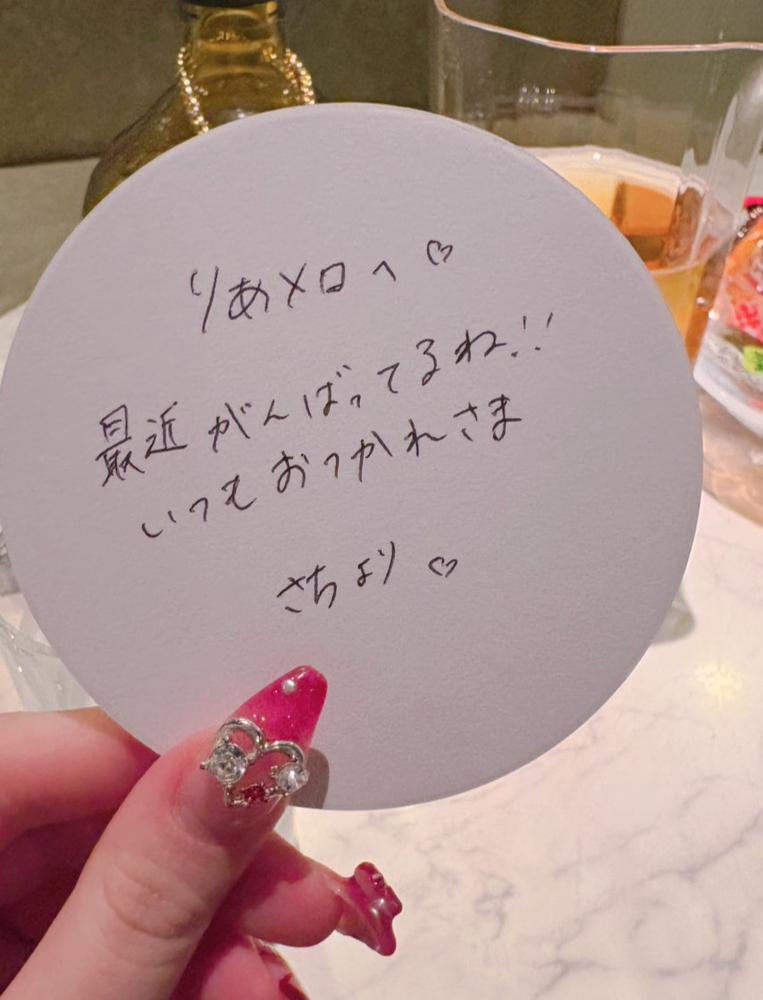 りあメロへ♡
最近がんばってるね!!
いつもおつかれさま
さちより♡